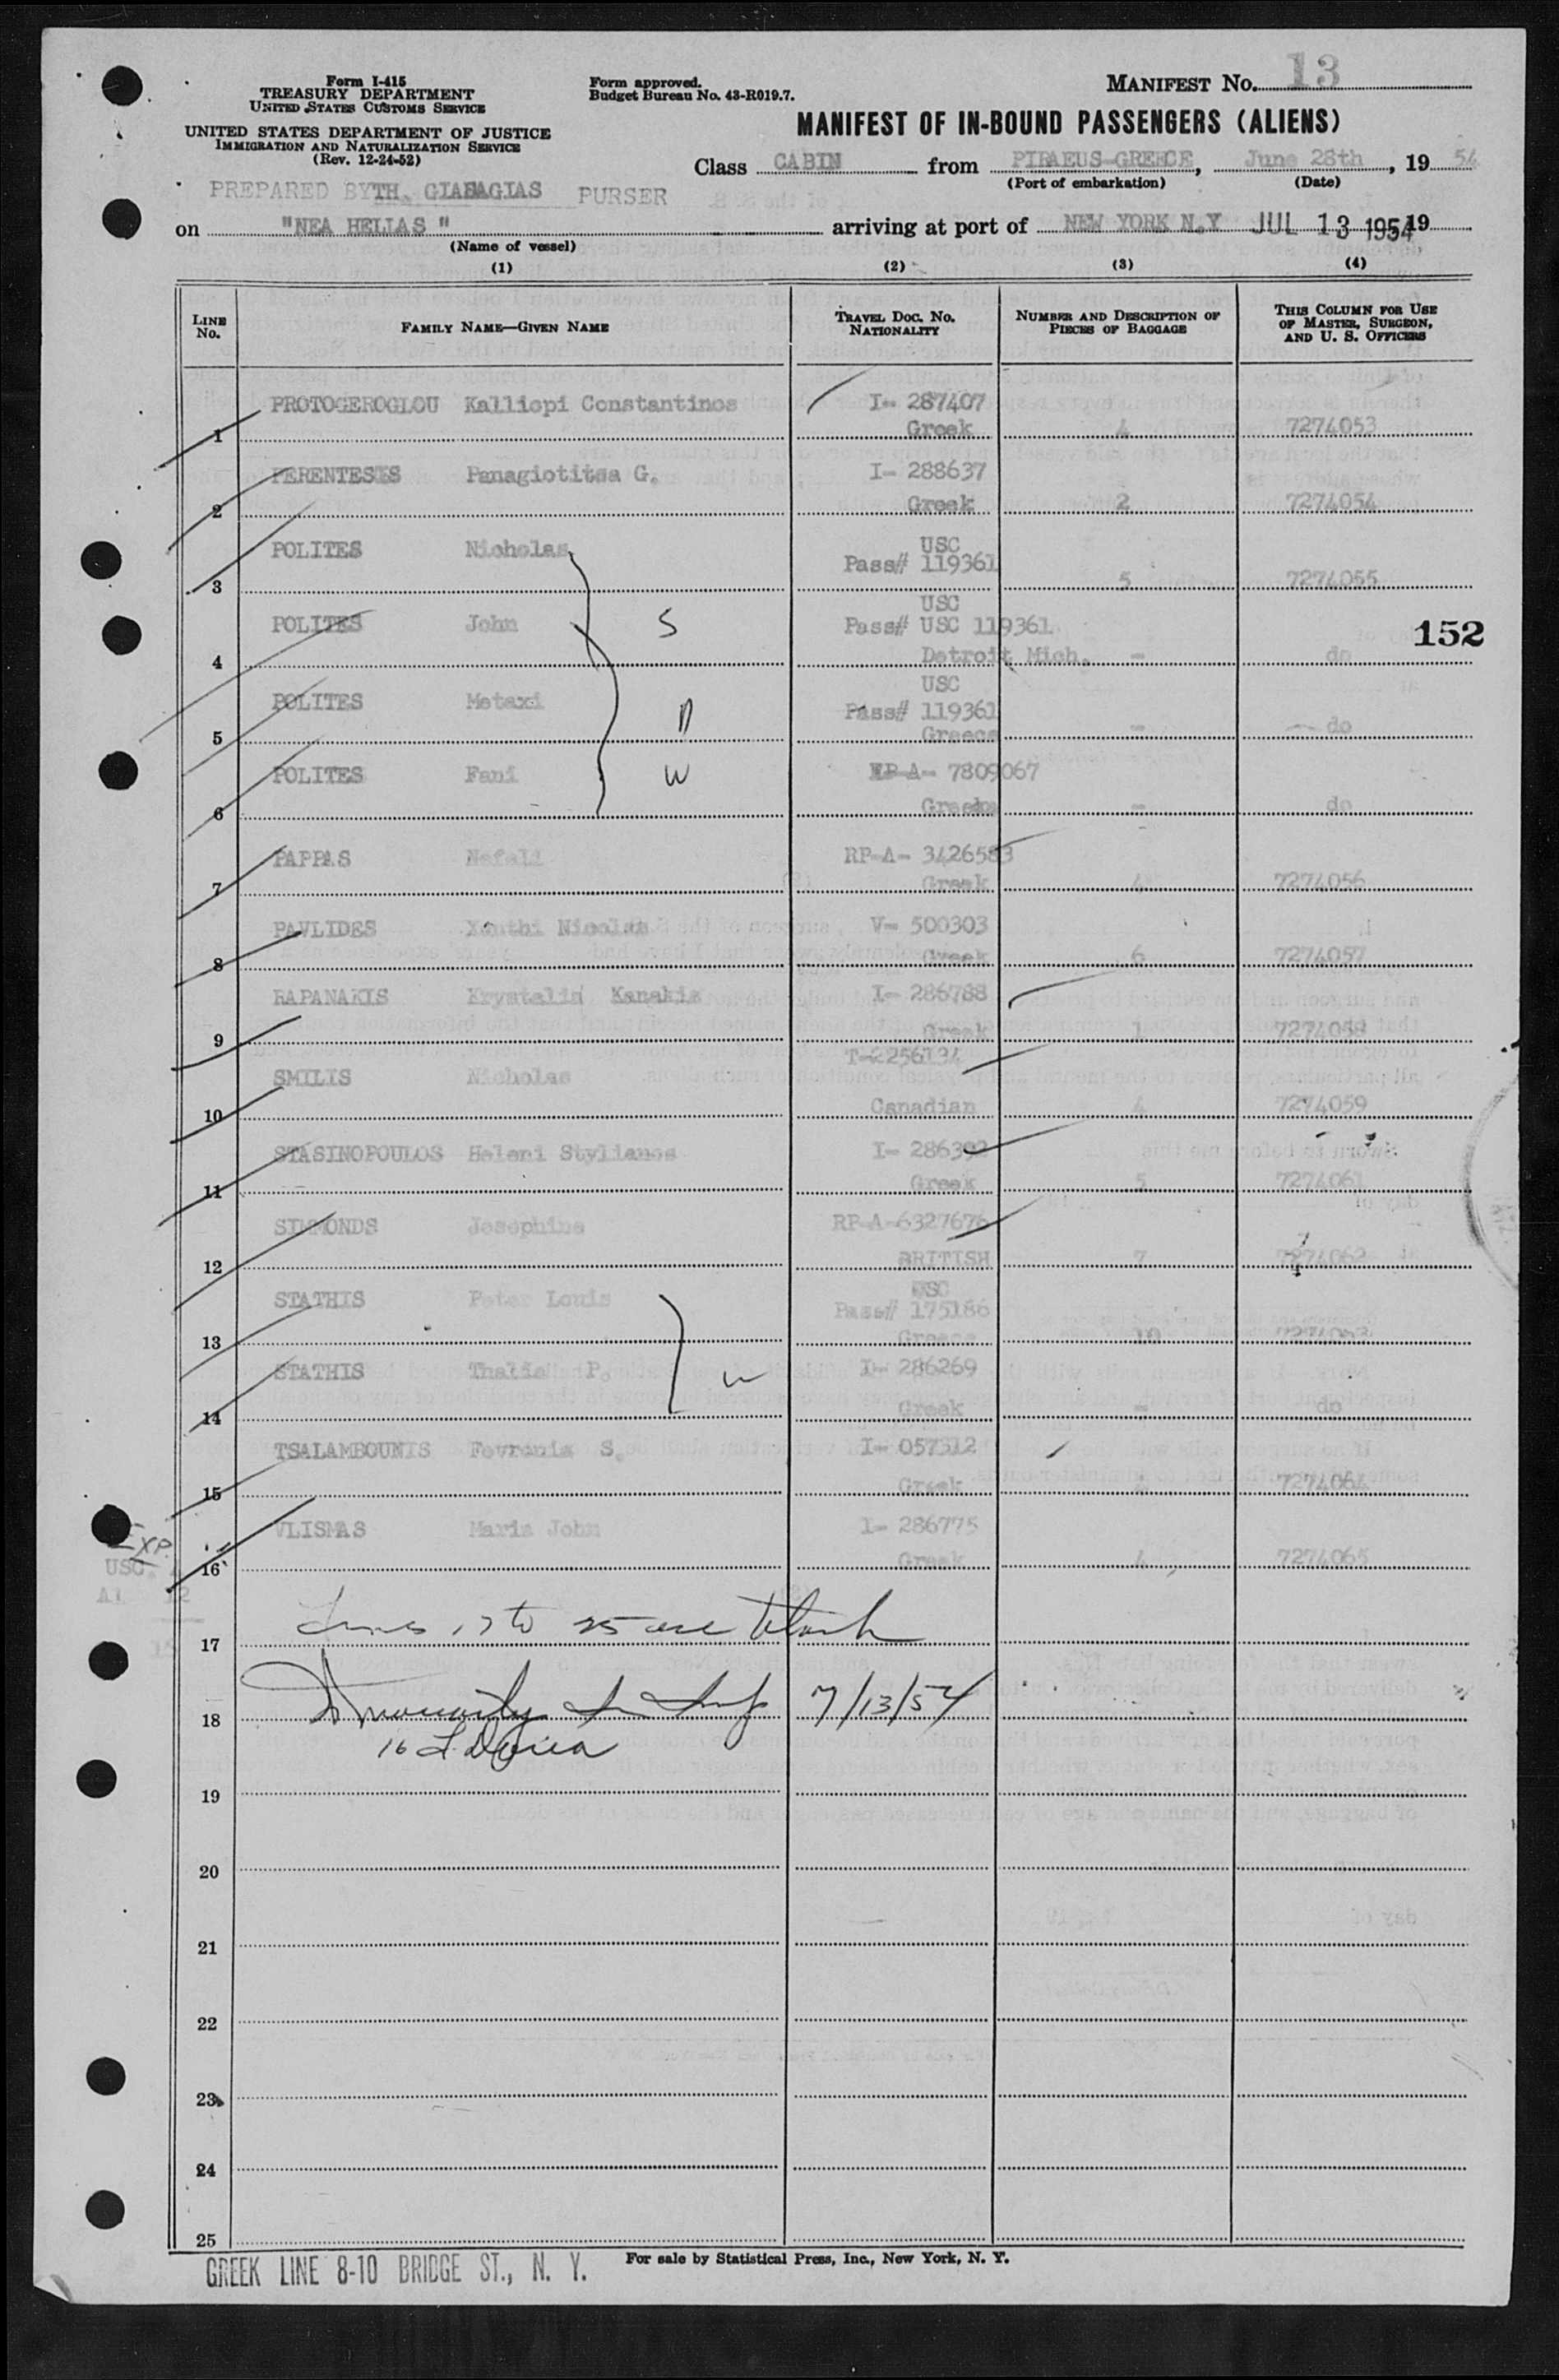 Form I-415
TREASURY DEPARTMENT
UNITED STATES CUSTOMS SERVICE
UNITED STATES DEPARTMENT OF JUSTICE
IMMIGRATION AND NATURALIZATION SERVICE
(Rev. 12-24-52)
Form approved.
Budget Bureau No. 43-R019.7.
MANIFEST No. 13
MANIFEST OF IN-BOUND PASSENGERS (ALIENS)
Class CABIN from PIRAEUS-GREECE, June 28th, 19 54
(Port of embarkation) (Date)
PREPARED BY TH. GIABAGIAS PURSER
on "NEA HELLAS" arriving at port of NEW YORK N.Y JUL 13 1954 19
(Name of vessel)
(1) (2) (3) (4)
LINE No. FAMILY NAME—GIVEN NAME TRAVEL DOC. No. NATIONALITY NUMBER AND DESCRIPTION OF PIECES OF BAGGAGE THIS COLUMN FOR USE OF MASTER, SURGEON, AND U. S. OFFICERS
PROTOGEROGLOU Kalliopi Constantinos I- 287407
1 Greek 4 7274053
PERENTESIS Panagiotitsa G. I- 288637
2 Greek 2 7274054
POLITES Nicholas USC
Pass# 119361
3 5 7274055
USC
POLITES John S Pass# USC 119361
152
4 Detroit Mich. - do
USC
POLITES Metaxi D Pass# 119361
5 Greece - do
POLITES Fani W RP-A- 7809067
6 Greek - do
PAPPAS Nafali RP-A- 3426583
7 Greek 4 7274056
PAVLIDES Xanthi Nicolas V- 500303
8 Greek 6 7274057
RAPANAKIS Krystalia Kanakis I- 286788
9 Greek 1 7274058
SMILIS Nicholas T-2256134
10 Canadian 4 7274059
STASINOPOULOS Heleni Stylianos I- 286392
11 Greek 5 7274061
SIMMONDS Josephine RP-A-6327676
12 BRITISH 7 7274062
STATHIS Peter Louis USC
Pass# 175186
13 Greece 10 7274063
STATHIS Thalia P. W I- 286269
14 Greek - do
TSALAMBOUNIS Fevronia S. I- 057312
15 Greek 7274064
VLISMAS Maria John I- 286775
EXP.
USC.
16 Greek 4 7274065
Al 12
Lines 17 to 25 are blank
17
7/13/54
18
16
19
20
21
22
23
24
25
GREEK LINE 8-10 BRIDGE ST., N. Y.
For sale by Statistical Press, Inc., New York, N. Y.